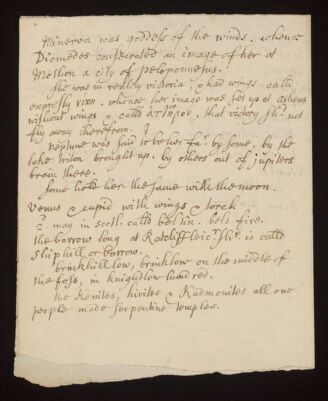 Minerva was goddess of the winds. whence
Diomedes consecrated an image of her at
Mothon a city of peloponnesus.
She was in reality victoria, & had wings. calld
expressly νικη. whence her image was set up at athens
without wings & calld απτερος. that victory sh.d not
fly away therefrom.
neptune was said to be her fa.r by some, by the
lake triton brought up. by others out of jupiters
brain there.
some held her the same with the moon.
Venus & cupid with wings & torch
may in scotl. calld beltin. bels fire.
the barrow long at Ratcliff leic.r sh.r is calld
Shiphill or barrow.
brinkhill low, brinklow on the middle of
the foss, in knightlow hundred.
the Kenites, hivites & Kadmonites all one
people made serpentine temples.